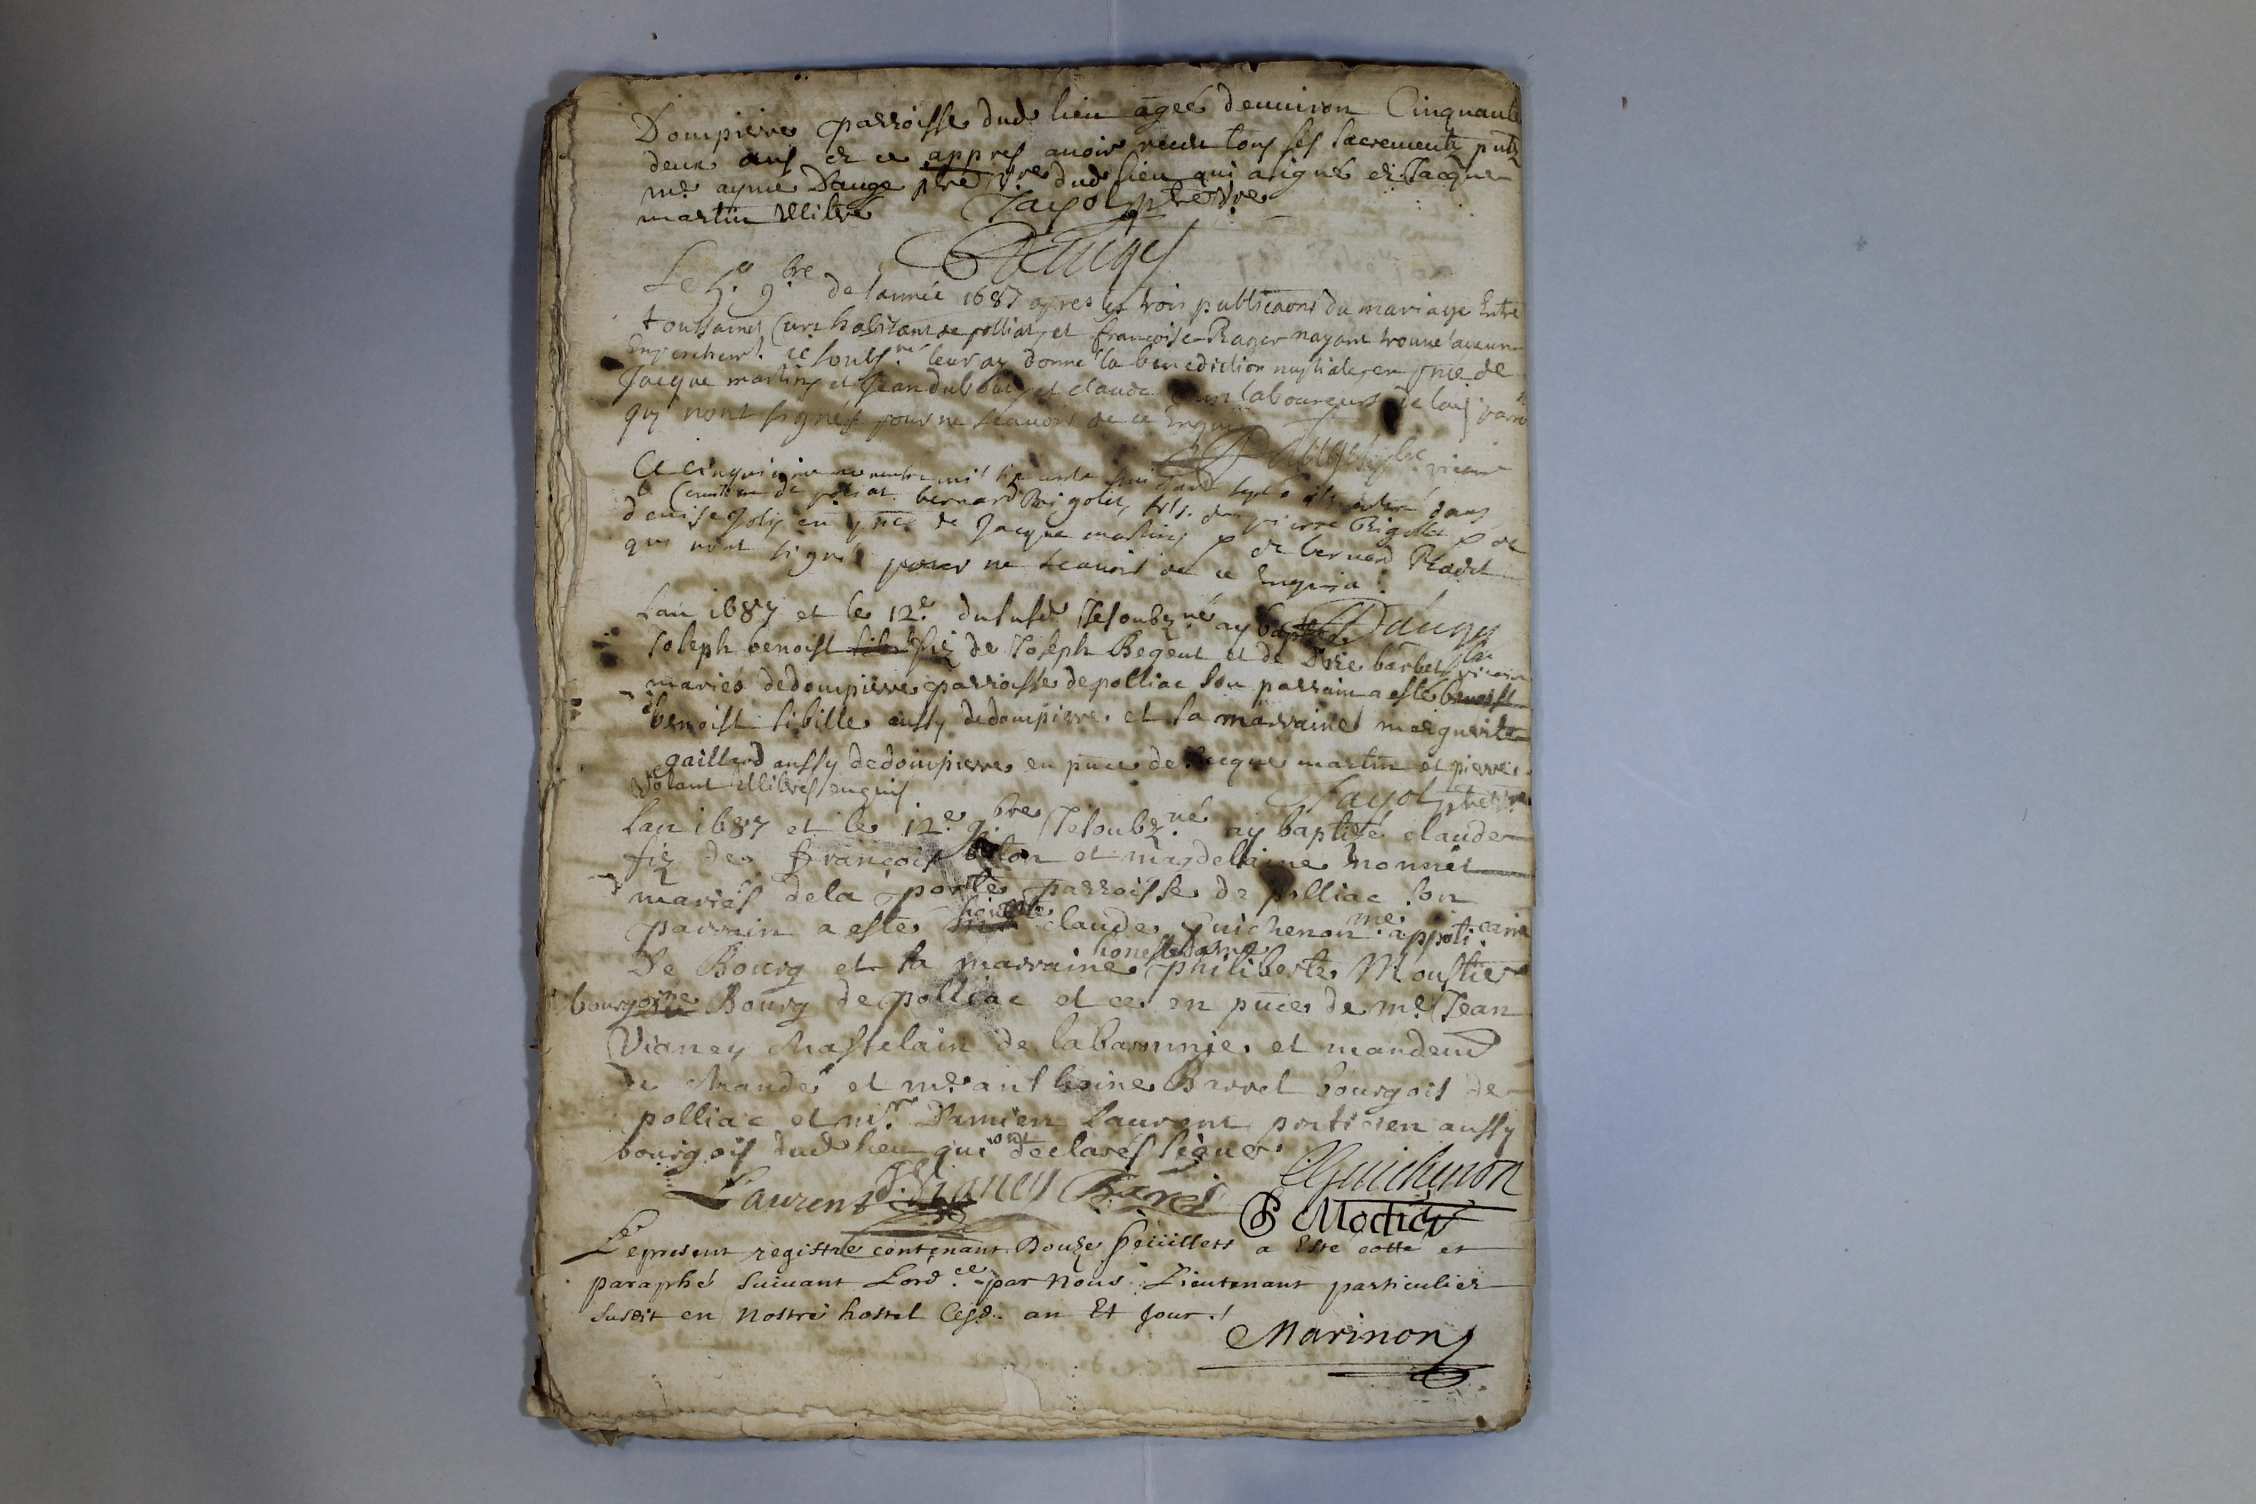 Dompierre parroisse dud lieu agee denuiron Cinquante
deux ans et ce appres auoir receu tous ses sacrements pnts
me ayme Dauge pbre vre dud lieu qui a signé et Jacque
martin Illitré Fayol pbre vre
Dauges
Le 5e 9bre de lannée 1687 apres les trois publicaons du mariage Entre
toussainct Curt habitant de polliat, et françoise Rager nayant trouué aucun
Empeschemt. ie soubsné leur ay donné la benediction nuptiale, en pnce de
Jacque martin, et Jean dubois, et claude laboureurs de lad parro
qui nont signés pour ne scauoir de ce Enquis
Dauges pbr vicaire
Ce cinquieme nouembre mil six cents huictant sept a esté enterré dans
le Cemitiere de polliat bernard Rigollet, fils de pierre Rigollet & de
denise Joly en pnce de Jacque martin & de bernard
qui nont signé pour ne scauoir de ce Enquis.
Dauges pbr vicaire
Lan 1687 et le 12e dususd Jesoubzné ay baptisé
Joseph benoist fiz de Joseph Begeut et de barbet
mariés dedompierre parroisse depolliac son parrain a esté benoist
benoist sibille aussy dedompierre et sa marraine marguerite
gaillard aussy dedompierre en pnce de Jacque martin et pierre
Volant Illitrés enquis Fayol pbre vre
Lan 1687 et le 12e 9bre Jesoubzné ay baptizé claude
fiz de françois et magdelaine monnet
mariés dela porte parroisse de polliac son
parrain a esté honeste claude Guichenon me appoticaire
De Bourg et sa marraine honeste philiberte Moustier
bourgoise Bourg de polliac et ce en pnce de me Jean
Vianey Chastelain de labarronnie et mandemt
de et me anthoine Barret bourgois de
polliac et mr Damien Laurent praticien aussy
bourgois dud lieu qui ont declarés signer.
Laurent J. Vianey Barret CGuichenon
P Mo
Le present registre contenant Douze feüillets a Esté cotté et
paraphé suiuant Lord.ce par Nous Lieutenant particulier
susdit en Nostre hostel lesd. an Et Jour.
Marinon